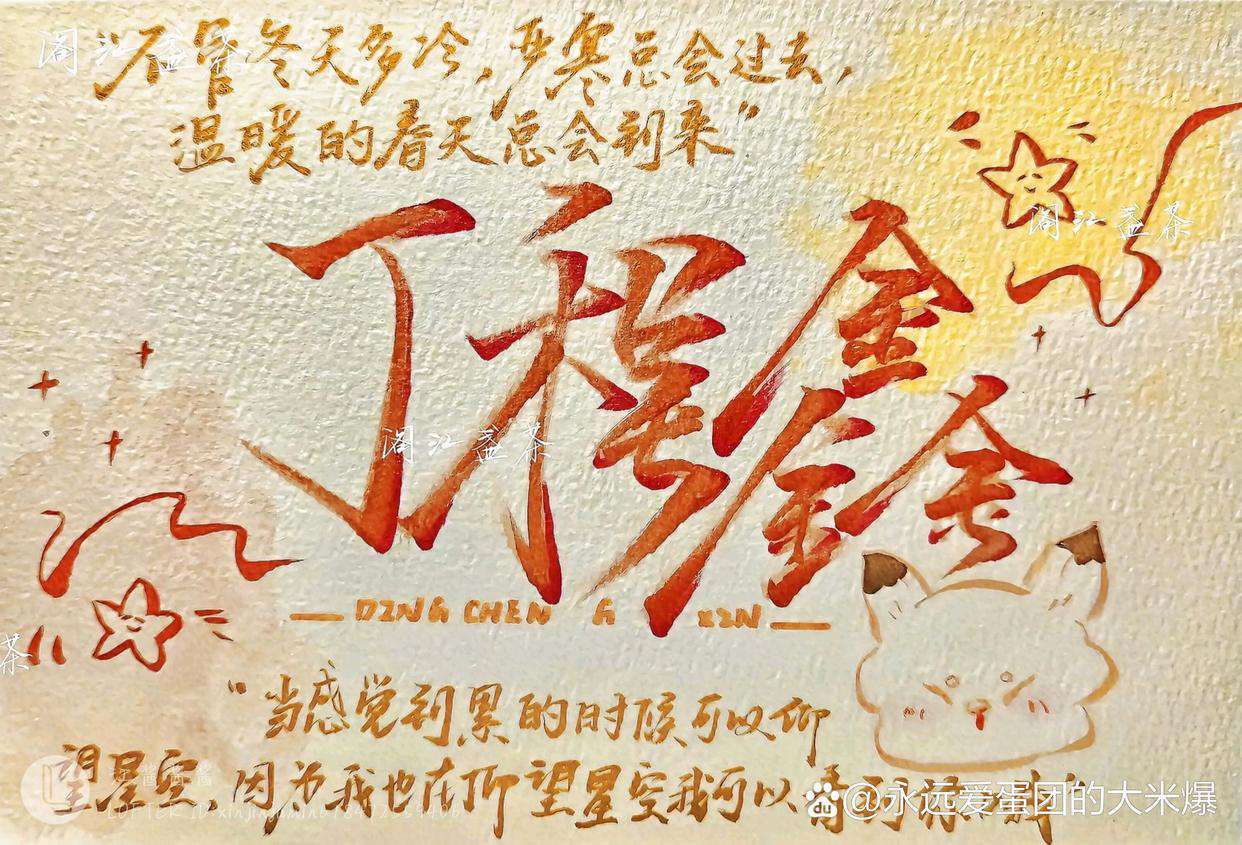 “不管冬天多冷，严寒总会过去，
温暖的春天总会到来”
丁程鑫
DING CHENG XIN
“当感觉到累的时候可以仰
望星空，因为我也在仰望星空我可以看到
阁江益茶
阁江益茶
阁江益茶
茶
@永远爱蛋团的大米爆